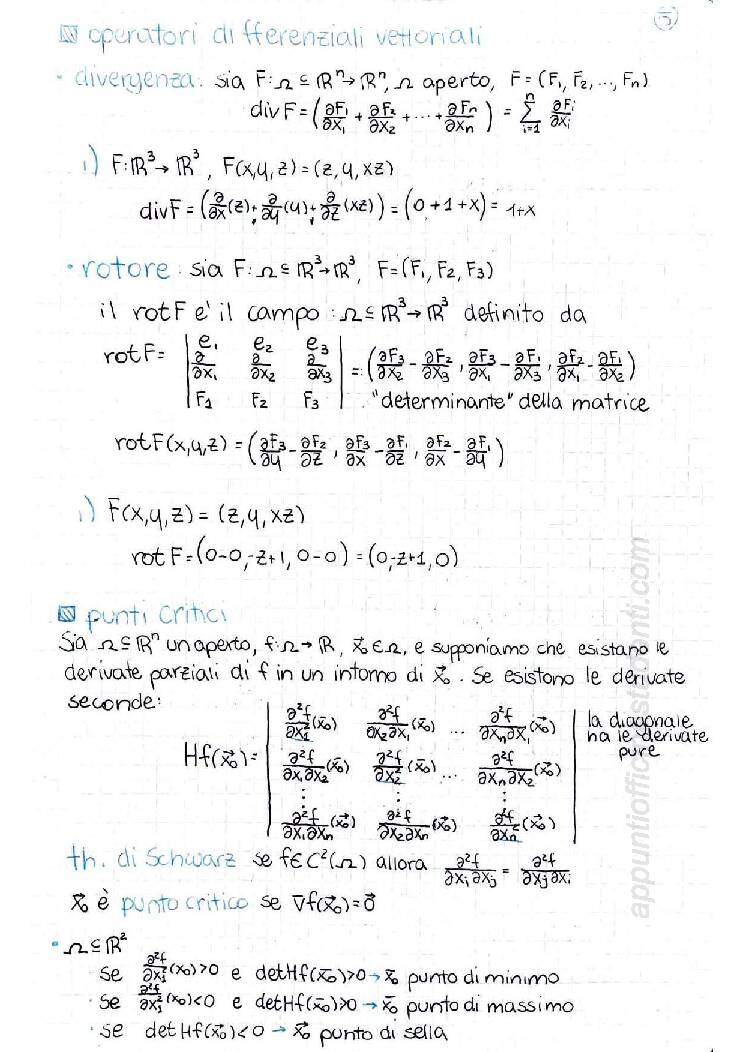 5
operatori differenziali vettoriali
• divergenza: sia F: Ω ⊆ ℝⁿ → ℝⁿ, Ω aperto, F = (F₁, F₂, ..., Fₙ)
div F = (∂F₁/∂x₁ + ∂F₂/∂x₂ + ... + ∂Fₙ/∂xₙ) = Σⁿᵢ₌₁ ∂Fᵢ/∂xᵢ
1) F: ℝ³ → ℝ³, F(x,y,z) = (z, y, xz)
div F = (∂/∂x (z) + ∂/∂y (y) + ∂/∂z (xz)) = (0+1+x) = 1+x
• rotore: sia F: Ω ⊆ ℝ³ → ℝ³, F = (F₁, F₂, F₃)
il rot F e' il campo : Ω ⊆ ℝ³ → ℝ³ definito da
rot F = | e₁ e₂ e₃ |
| ∂/∂x₁ ∂/∂x₂ ∂/∂x₃ | = (∂F₃/∂x₂ - ∂F₂/∂x₃, ∂F₃/∂x₁ - ∂F₁/∂x₃, ∂F₂/∂x₁ - ∂F₁/∂x₂)
| F₁ F₂ F₃ | "determinante" della matrice
rot F(x,y,z) = (∂F₃/∂y - ∂F₂/∂z, ∂F₃/∂x - ∂F₁/∂z, ∂F₂/∂x - ∂F₁/∂y)
1) F(x,y,z) = (z, y, xz)
rot F = (0-0, -z+1, 0-0) = (0, -z+1, 0)
punti critici
Sia Ω ⊆ ℝⁿ un aperto, f: Ω → ℝ, x⃗₀ ∈ Ω, e supponiamo che esistano le
derivate parziali di f in un intorno di x⃗₀. Se esistono le derivate
seconde:
| ∂²f/∂x₁² (x⃗₀) ∂²f/∂x₂∂x₁ (x⃗₀) ... ∂²f/∂xₙ∂x₁ (x⃗₀) | la diagonale
Hf(x⃗₀) = | ∂²f/∂x₁∂x₂ (x⃗₀) ∂²f/∂x₂² (x⃗₀) ... ∂²f/∂xₙ∂x₂ (x⃗₀) | ha le derivate
pure
⋮ ⋮ ⋮
| ∂²f/∂x₁∂xₙ (x⃗₀) ∂²f/∂x₂∂xₙ (x⃗₀) ∂²f/∂xₙ² (x⃗₀) |
th. di Schwarz se f ∈ C²(Ω) allora ∂²f/∂xᵢ∂xⱼ = ∂²f/∂xⱼ∂xᵢ
x⃗₀ è punto critico se ∇f(x⃗₀) = 0⃗
• Ω ⊆ ℝ²
se ∂²f/∂x₁² (x₀) > 0 e det Hf(x⃗₀) > 0 → x⃗₀ punto di minimo
• se ∂²f/∂x₁² (x₀) < 0 e det Hf(x⃗₀) > 0 → x⃗₀ punto di massimo
• se det Hf(x⃗₀) < 0 → x⃗₀ punto di sella